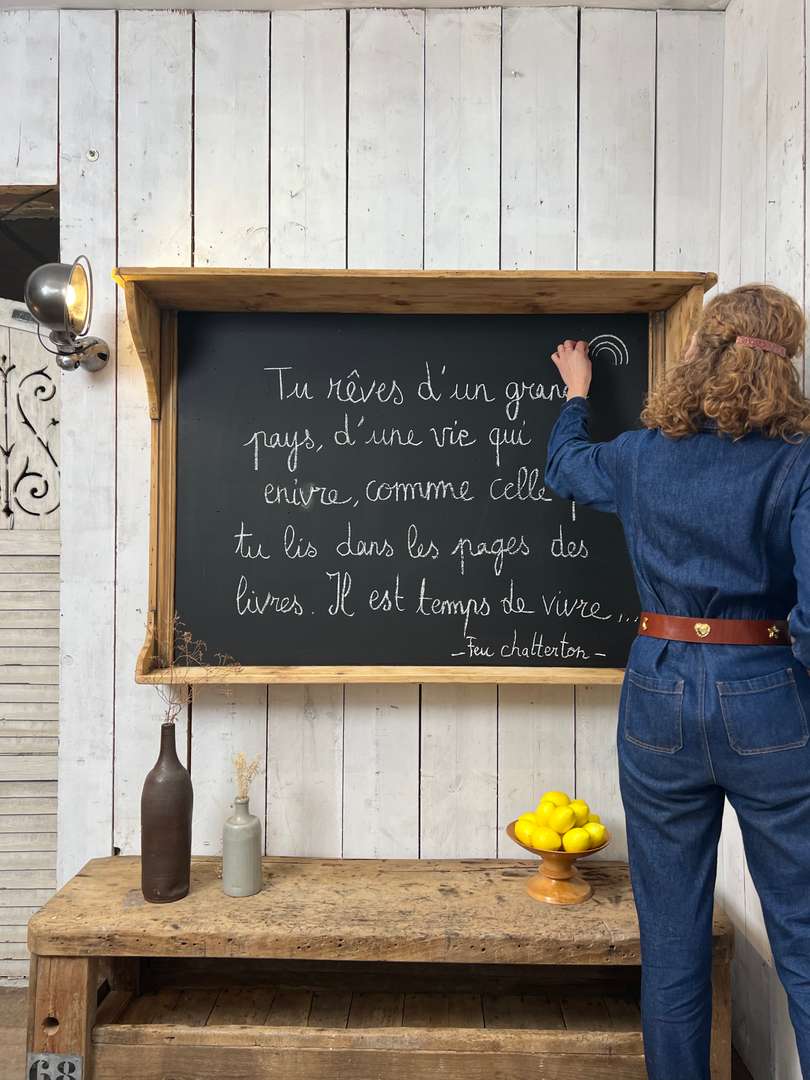 Tu rêves d'un gran
pays, d'une vie qui
enivre, comme celle
tu lis dans les pages des
livres. Il est temps de vivre...
- Feu chatterton -
68